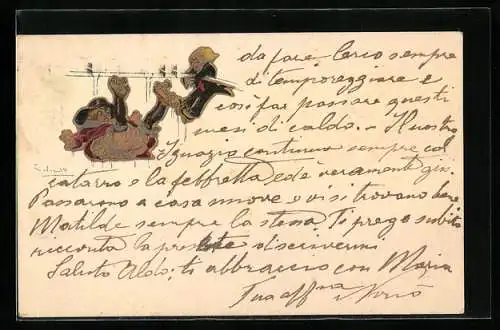 da fare. Cerco sempre
di temporeggiare e
così far passare questi
mesi di caldo. - Il nostro
Ignazio continua sempre col
catarro e la febbretta ed è veramente giù.
Passarono a casa nuova e vi si trovano bene
Matilde sempre la stessa. Ti prego subito
ricevuta la di scrivermi
Saluto Aldo; ti abbraccio con Maria
Tua aff.ma